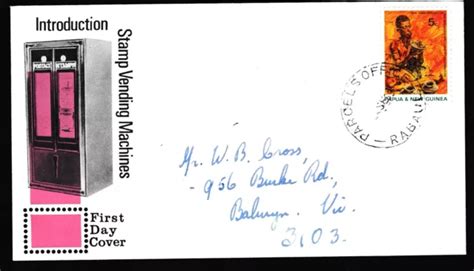 Introduction
Stamp Vending Machines
POSTAGE STAMPS
First
Day
Cover
5c
PAPUA & NEW GUINEA
PARCELS OFF
RABAUL
Mr. W. B. Cross,
956 Burke Rd,
Balwyn. Vic.
3103.